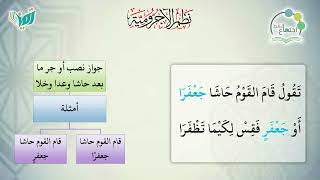 نظم الآجرومية
تَقُولُ قَامَ القَوْمُ حَاشَا جَعْفَرَا
أَوْ جَعْفَرٍ فَقِسْ لِكَيْمَا تَظْفَرَا
جواز نصب أو جر ما
بعد حاشا وعدا وخلا
أمثلة
قام القوم حاشا
جعفرًا
قام القوم حاشا
جعفرٍ